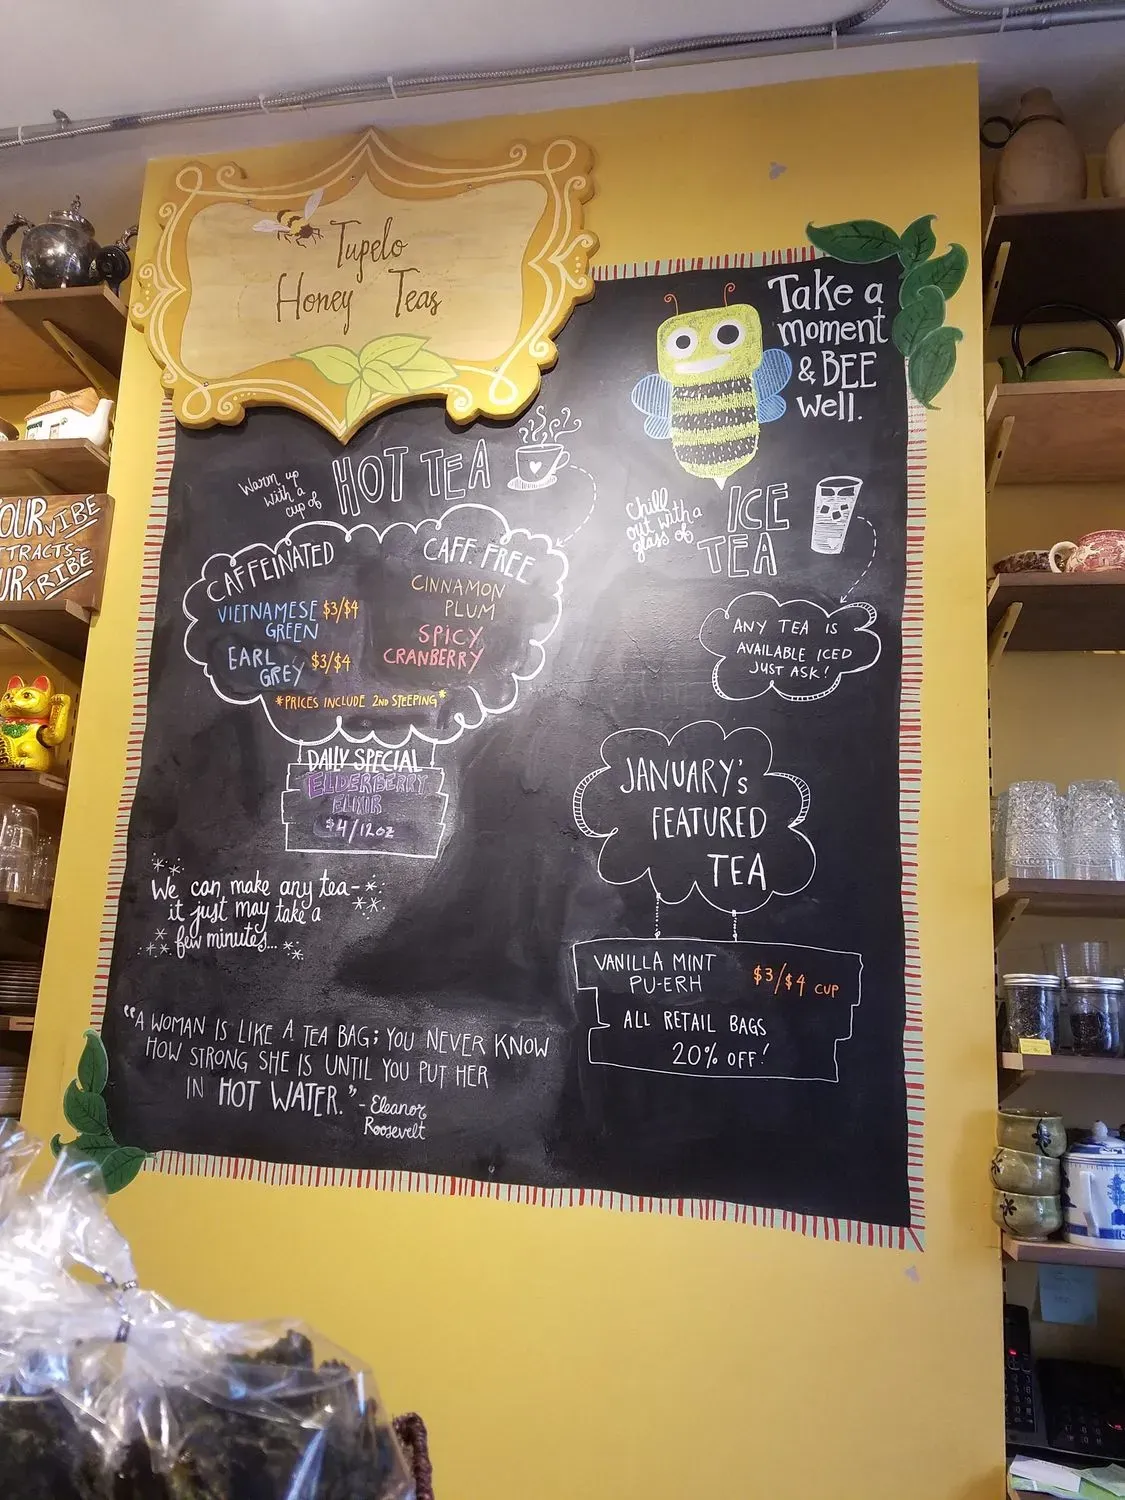 Tupelo
Honey Teas
Take a
moment
& BEE
well.
Warm up
with a
cup of
HOT TEA
CAFFEINATED
VIETNAMESE $3/$4
GREEN
EARL
GREY $3/$4
CAFF. FREE
CINNAMON
PLUM
SPICY
CRANBERRY
*PRICES INCLUDE 2ND STEEPING*
DAILY SPECIAL
ELDERBERRY
ELIXIR
$4/12oz
We can make any tea-
it just may take a
few minutes...
"A WOMAN IS LIKE A TEA BAG; YOU NEVER KNOW
HOW STRONG SHE IS UNTIL YOU PUT HER
IN HOT WATER." - Eleanor
Roosevelt
Chill
out with a
glass of
ICE
TEA
ANY TEA IS
AVAILABLE ICED
JUST ASK!
JANUARY's
FEATURED
TEA
VANILLA MINT
PU-ERH
$3/$4 CUP
ALL RETAIL BAGS
20% OFF!
OUR VIBE
TTRACTS
UR TRIBE